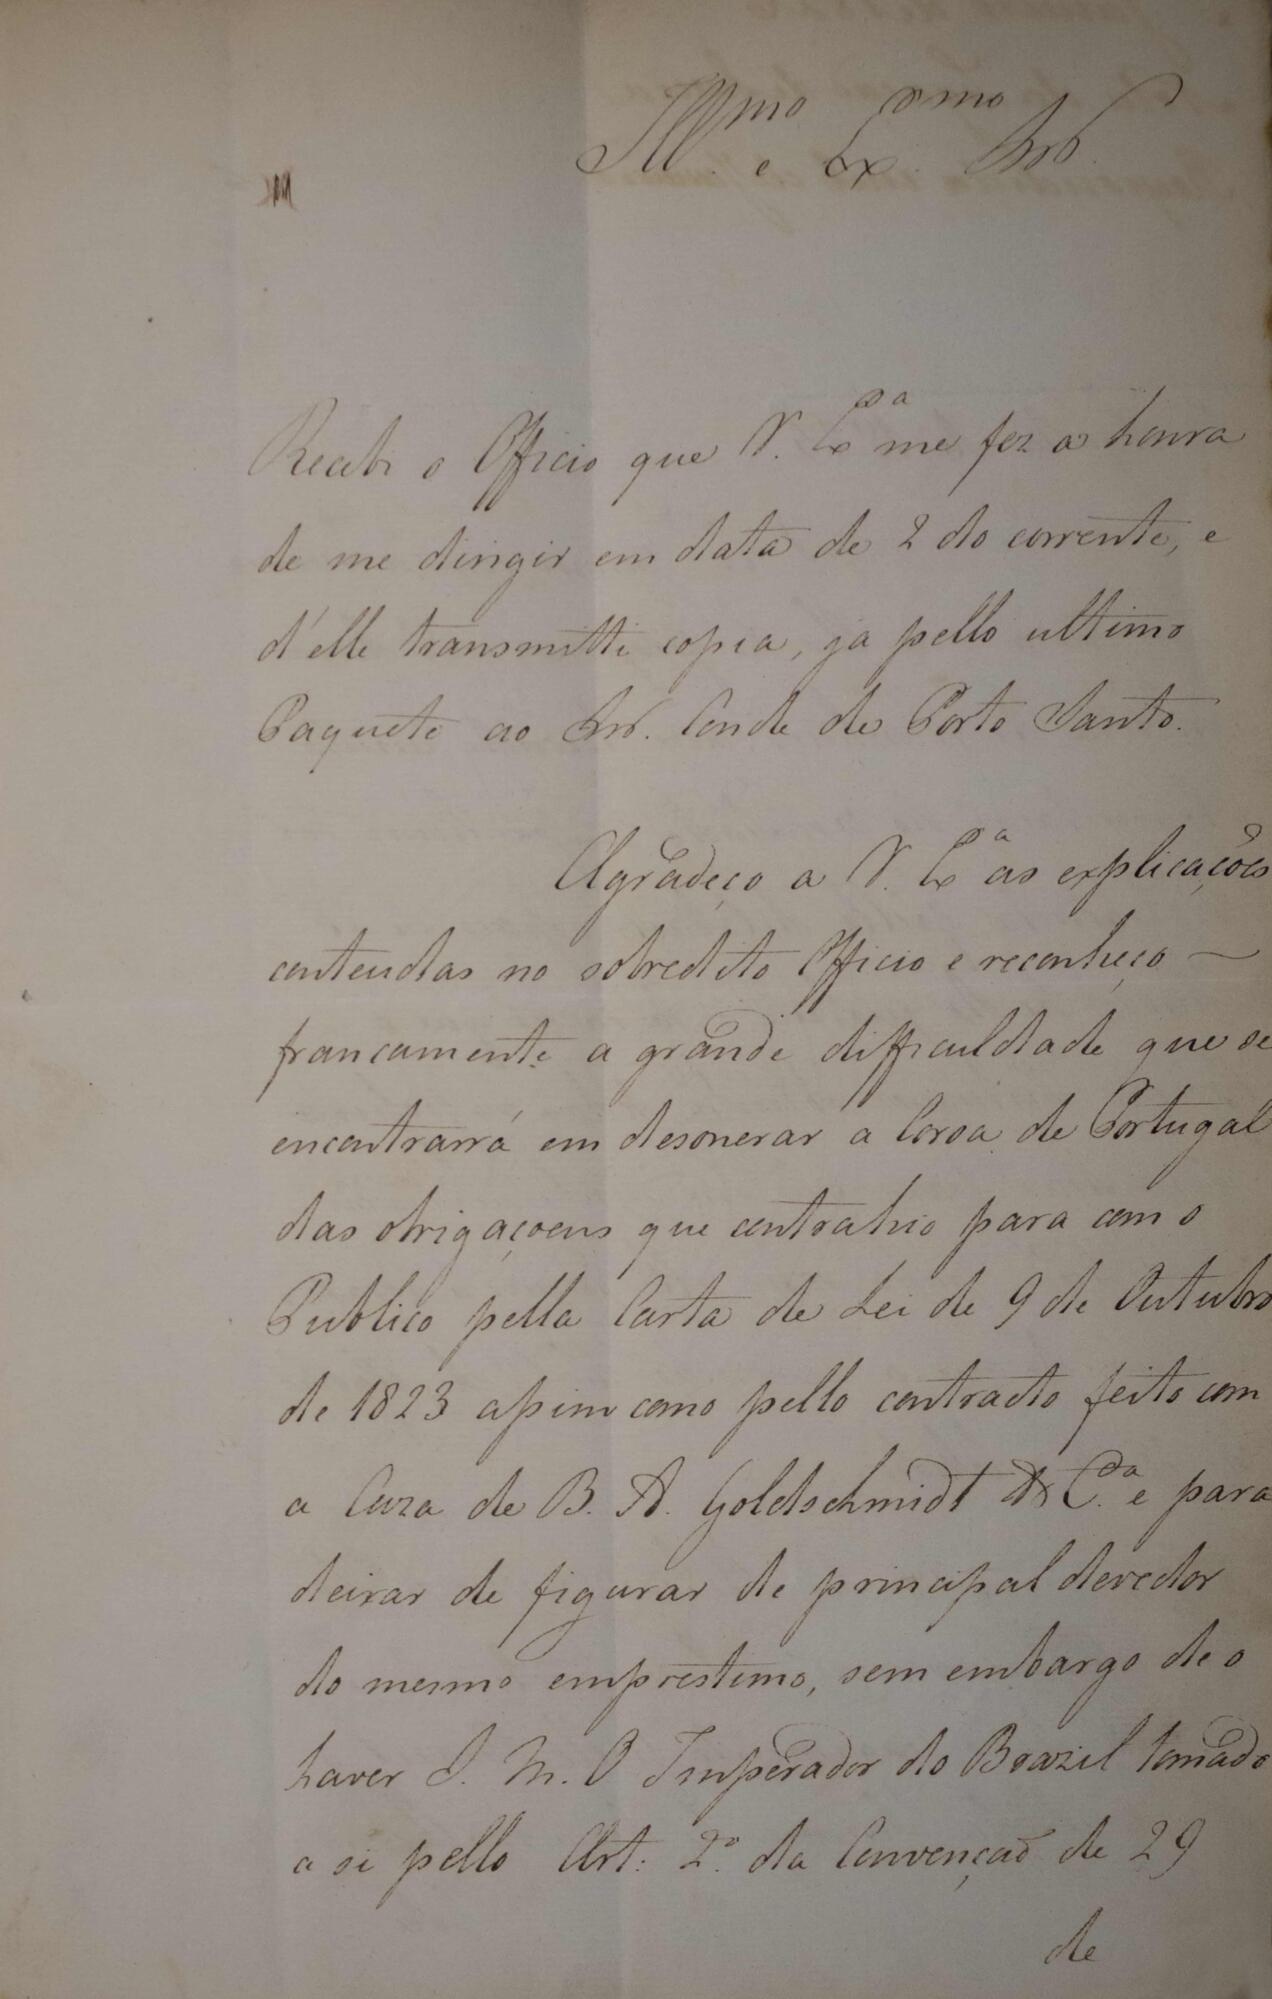 Ill.mo e Ex.mo Snr.
Recebi o Officio que V. Ex.a me fez a honra
de me dirigir em data de 2 do corrente, e
d'elle transmitti copia, ja pello ultimo
Paquete ao Snr. Conde de Porto Santo.
Agradeço a V. Ex.a as explicações
contendas no sobredito Officio e reconheço —
francamente a grande difficuldade que se
encontrará em desonerar a Coroa de Portugal
das obrigaçoens que contrahio para com o
Publico pella Carta de Lei de 9 de Outubro
de 1823 assim como pello contracto feito com
a Caza de B. A. Goldschmidt & C.a e para
deixar de figurar de principal devedor
do mesmo emprestimo, sem embargo de o
haver S. M. O Imperador do Brazil tomado
a si pello Art: 2.o da Convençaõ de 29
de